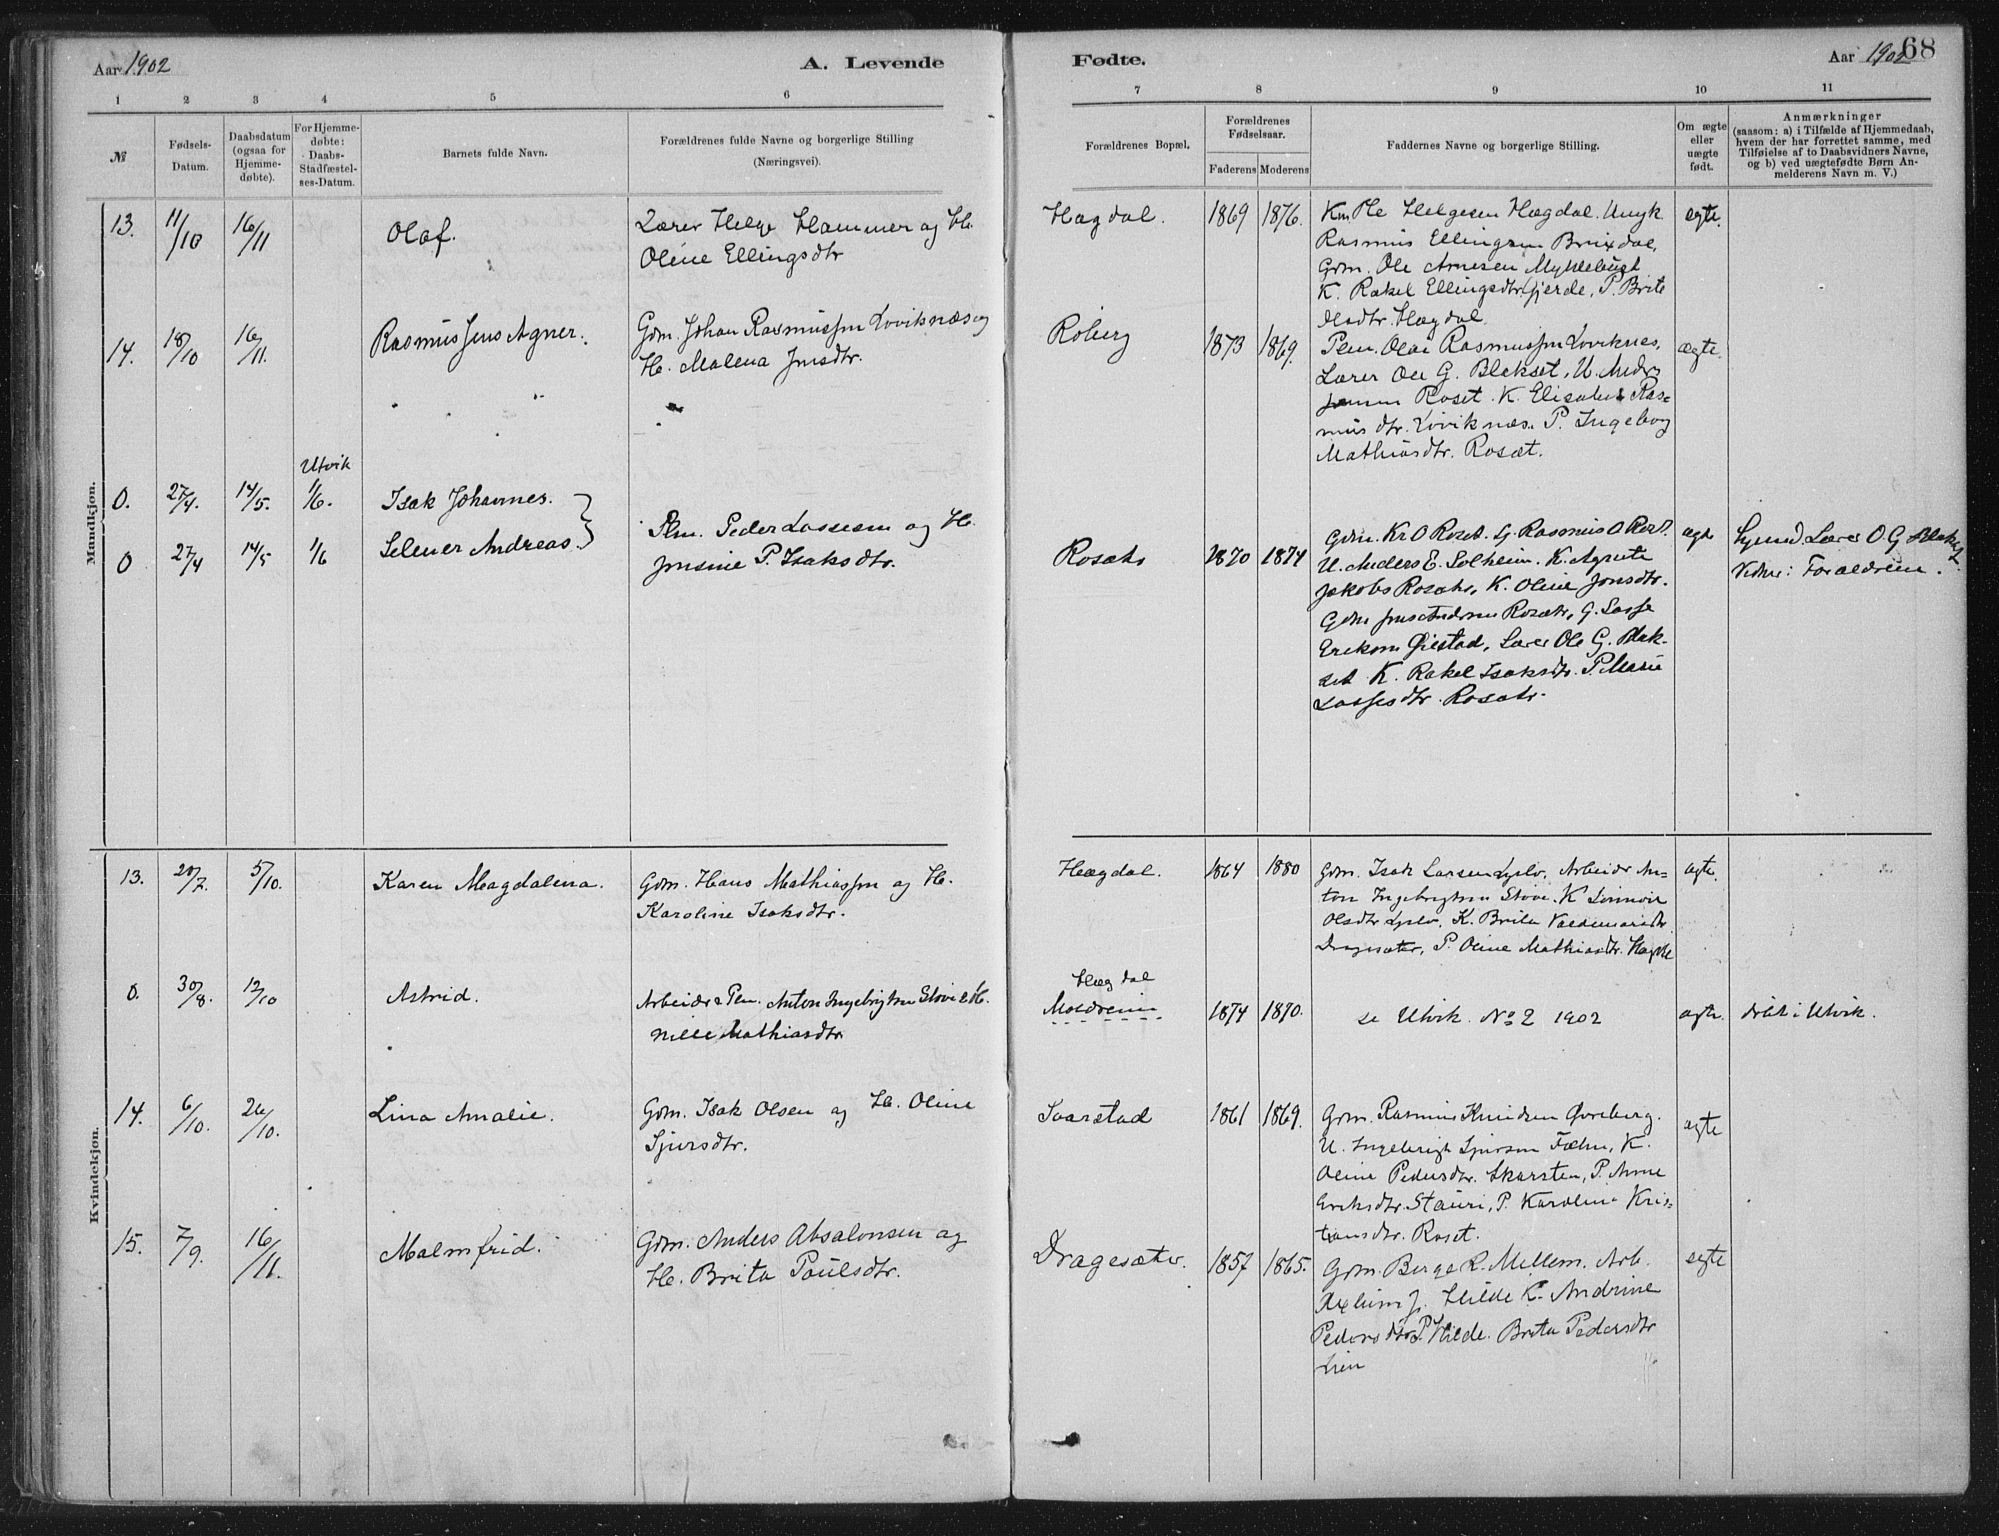 Aar 1902
A. Levende
Fødte.
Aar 1902
68
1 2 3 4 5 6 7 8 9 10 11
№
Fødsels-
Datum.
Daabsdatum
(ogsaa for
Hjemme-
døbte).
For Hjemme-
døbte:
Daabs-
Stadfæstel-
ses-Datum.
Barnets fulde Navn.
Forældrenes fulde Navne og borgerlige Stilling
(Næringsvei).
Forældrenes Bopæl.
Forældrenes
Fødselsaar.
Faderens Moderens
Faddernes Navne og borgerlige Stilling.
Om ægte
eller
uægte
født.
Anmærkninger
(saasom: a) i Tilfælde af Hjemmedaab,
hvem der har forrettet samme, med
Tilføielse af to Daabsvidners Navne,
og b) ved uægtefødte Børn An-
melderens Navn m. V.)
Mandkjøn.
13. 11/10 16/11 Olaf.
Lærer Helge Hammer og H.
Oline Ellingsdtr
Hægdal. 1869 1876.
Helgesen Hægdal. Ungk.
Rasmus Ellingsen Brixdal,
Gdm. Ole Arnesen Myklebust
K. Rakel Ellingsdtr. Gjerde, P. Brite
Olsdtr. Hægdal.
ægte.
14. 18/10 16/11. Rasmus Jens Agner.
Gdm. Johan Rasmussen Loviknæs og
H. Malena Jonsdtr.
Roberg 1873 1869.
Plm. Olai Rasmussen Loviknes,
Lærer Ole G. Blakset, U. Andr.
Roset. K. Elisabet Ras-
musdtr. Loviknæs. P. Ingeborg
Mathiasdtr. Rosæt.
ægte.
Utvik
0. 27/4. 14/5. 1/6. Isak Johannes.
0 27/4 14/5 1/6 Selmer Andreas.
Plm. Peder Lassesen og H.
Jonsine P. Isaksdtr.
Rosætr 1870 1874
Gdm. Kr O Roset. G. Rasmus O Roset.
U. Anders E. Solheim. K. Agnete
Jakobs Rosætr, K. Oline Jonsdtr.
Gdm Rosætr, G. Lasse
Eriksen Øiestad, Lærer Ole G. Blak-
set K. Rakel Isaksdtr. P. Marie
Lassesdtr. Rosætr.
ægte
Lærer O G Blakset
Vidner: Forældrene.
Kvindekjøn.
13. 20/7. 5/10. Karen Magdalena.
Gdm. Hans Mathiassen og H.
Karoline Isaksdtr.
Hægdal. 1864 1880
Gdm. Isak Larsen Lyslo, Arbeider An-
ton Ingebrigtsen Stove. K
Olsdtr Lyslo, K. Brite Valdemarsdtr.
Dragesæter, P. Oline Mathiasdtr.
ægte.
0. 30/8. 12/10 Astrid.
Arbeider & Plm. Anton Ingebrigtsen Stove & H.
Nille Mathiasdtr
Hægdal
Moldreim 1874 1870.
se Utvik No 2 1902
ægte. døbt i Utvik.
14. 6/10. 26/10. Lina Amalie.
Gdm. Isak Olsen og H. Oline
Sjursdtr.
Svarstad 1861 1869.
Gdm. Rasmus Knudsen Øvreberg.
U. Ingebrigt Sjursen Fæhn, K.
Oline Pedersdtr. Skarsten, P. Anne
Eriksdtr. Stauri, P. Karoline Kris-
tiansdtr. Roset.
ægte
15. 7/9. 16/11. Malmfrid.
Gdm. Anders Absalonsen og
H. Brita Paulsdtr.
Dragesæter. 1857 1865.
Gdm. Børge R. Mellem. Arb.
Hilde K. Andrine
Pedersdtr. P. Hilde. Brita Pedersdtr
Lien
ægte